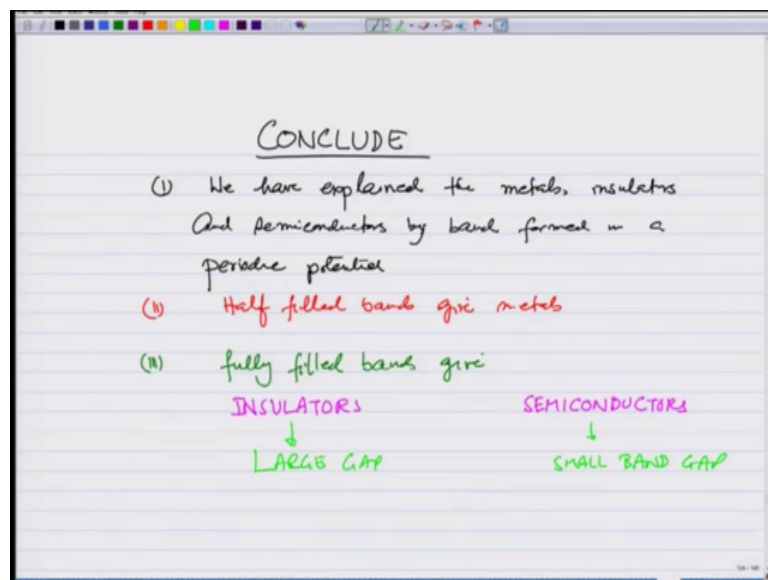 CONCLUDE
(I) We have explained the metals, insulators
And semiconductors by band formed in a
periodic potential
(II) Half filled bands give metals
(III) fully filled bands give
INSULATORS SEMICONDUCTORS
↓ ↓
LARGE GAP SMALL BAND GAP